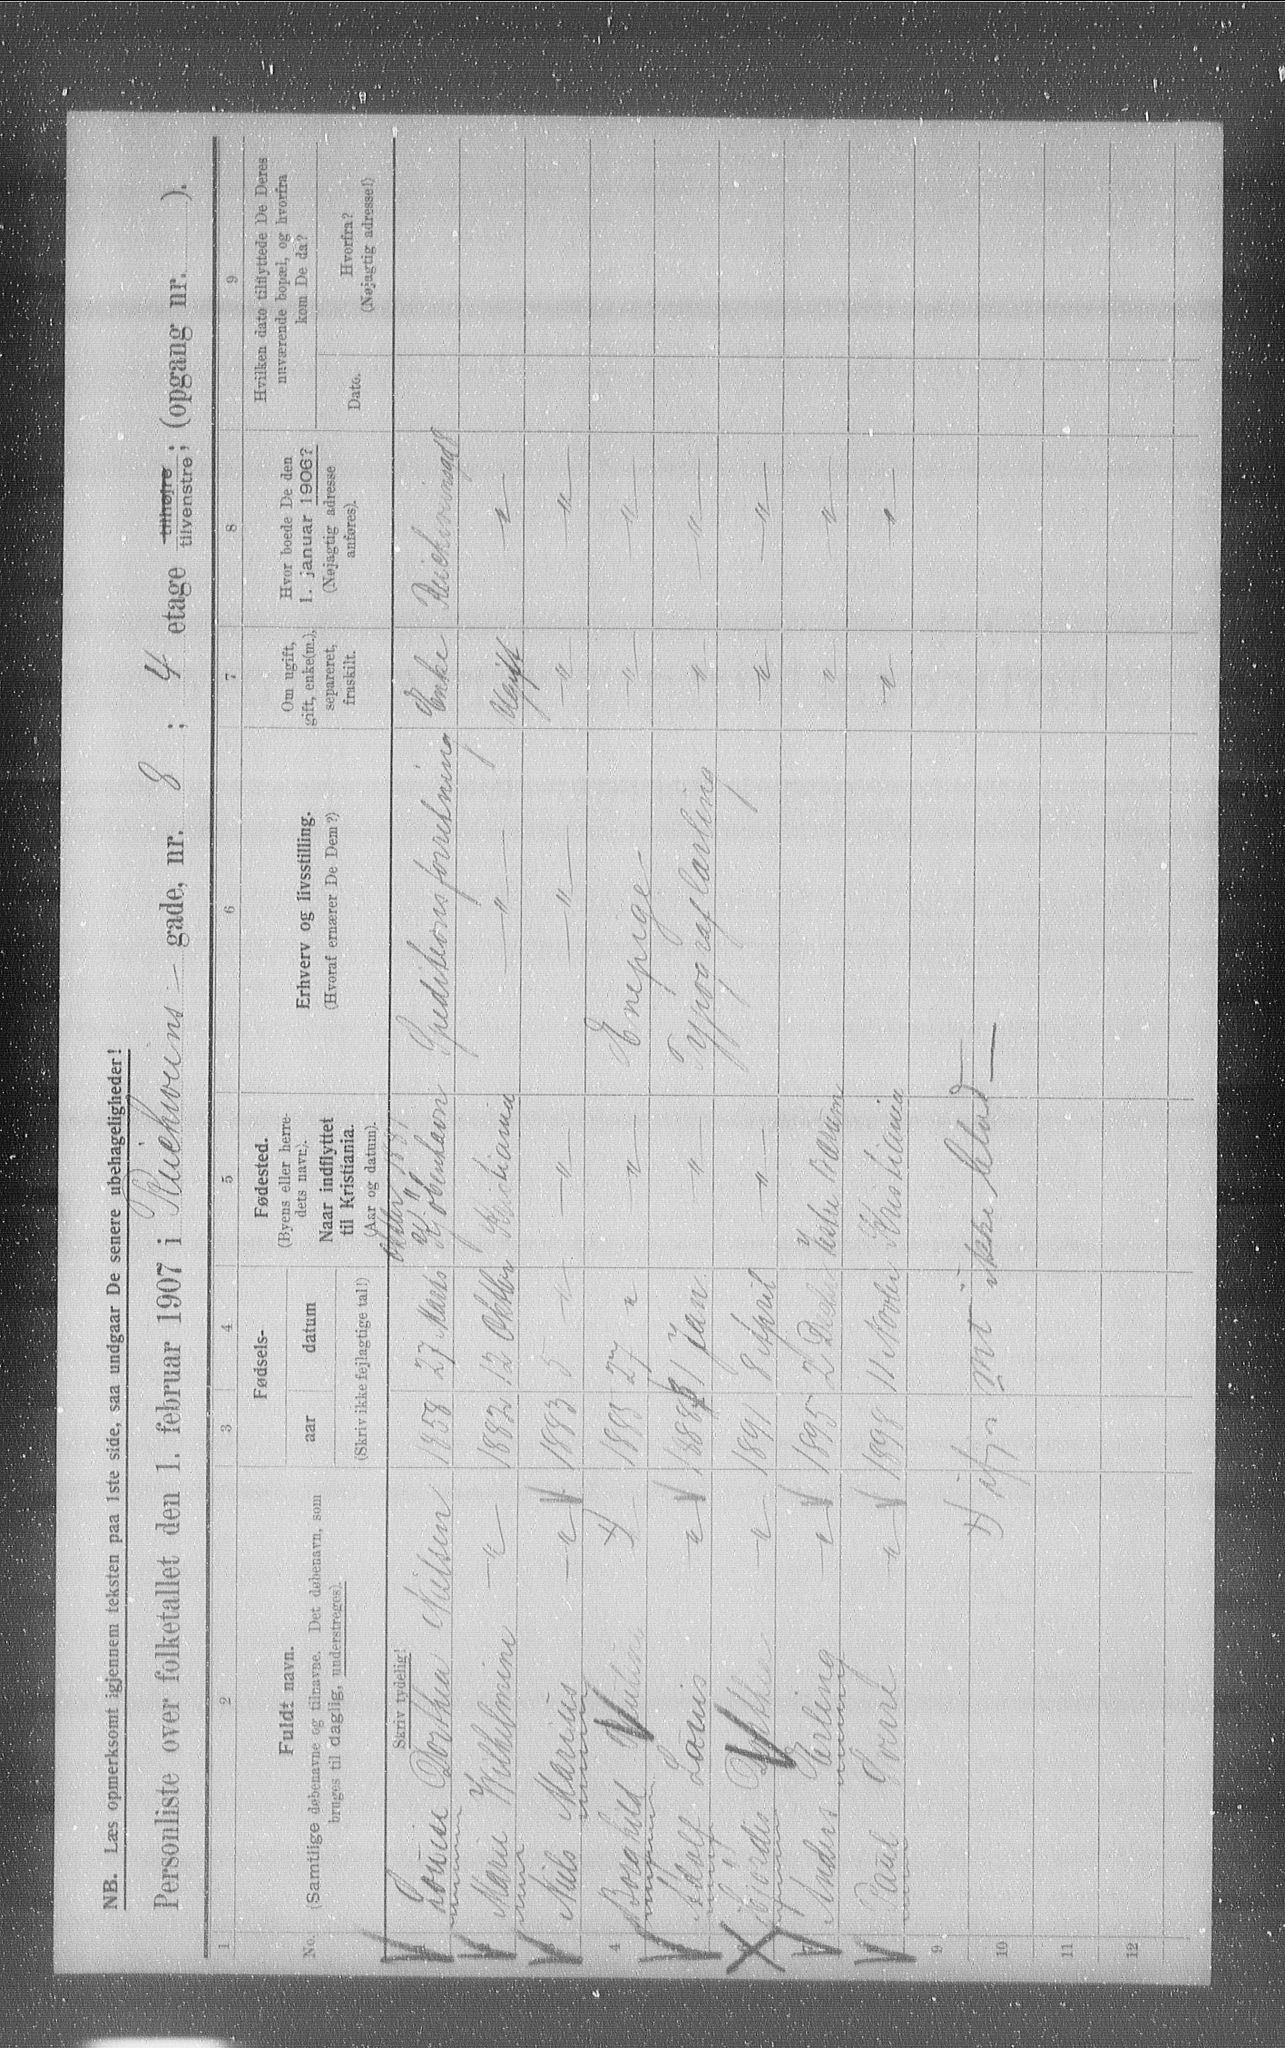 NB. Læs opmerksomt igjennem teksten paa 1ste side, saa undgaar De senere ubehageligheder!
Personliste over folketallet den 1. februar 1907 i gade, nr. 8 ; 4 etage tilhøjre tilvenstre; (opgang nr. ).
1 2 3 4 5 6 7 8 9
No.
Fuldt navn.
(Samtlige døbenavne og tilnavne. Det døbenavn, som
bruges til daglig, understreges).
Skriv tydelig!
Fødsels-
aar datum
(Skriv ikke fejlagtige tal!)
Fødested.
(Byens eller herre-
dets navn).
Naar indflyttet
til Kristiania.
(Aar og datum).
Erhverv og livsstilling.
(Hvoraf ernærer De Dem?)
Om ugift,
gift, enke(m.),
separeret,
fraskilt.
Hvor boede De den
1. januar 1906?
(Nøjagtig adresse
anføres).
Hvilken dato tilflyttede De Deres
nuværende bopæl, og hvorfra
kom De da?
Dato.
Hvorfra?
(Nøjagtig adresse!)
Louise Dorthea Nielsen 1858 27 Marts Kjøbenhavn Speditionsforretning Enke
Marie Vilhelmine -"- 1882 12 Oktbr Kristiania -"- Ugift -"-
Niels Marius -"- 1883 5 -"- -"- -"- -"- -"-
4 Borghild 1885 27 " -"- Enepige -"- -"-
Adolf Louis -"- 1888 11 Jan. -"- Typograflærling -"- -"-
Hjørdis Dorthea -"- 1891 8 April -"- -"- -"-
7 Anders Erling -"- 1895 2 -"- -"-
Paul -"- 1898 11 Novbr Kristiania -"- -"-
9
10 ikke
11
12